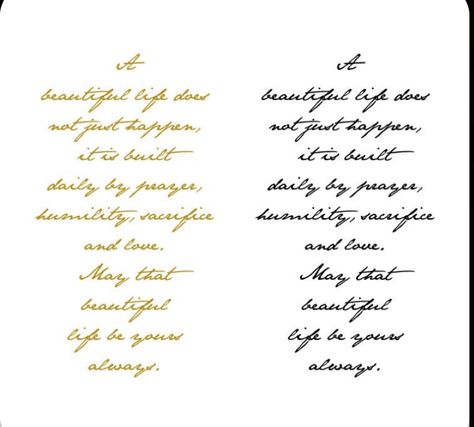 A
beautiful life does
not just happen,
it is built
daily by prayer,
humility, sacrifice
and love.
May that
beautiful
life be yours
always.
A
beautiful life does
not just happen,
it is built
daily by prayer,
humility, sacrifice
and love.
May that
beautiful
life be yours
always.